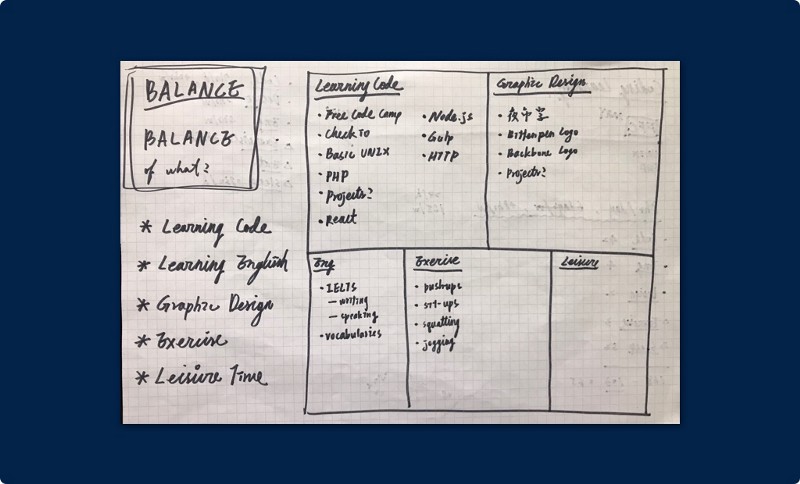 BALANCE
BALANCE
of what?
* Learning Code
* Learning English
* Graphic Design
* Exercise
* Leisure Time
Learning Code
• Free Code Camp
• CheckiO
• Basic UNIX
• PHP
• Projects?
• React
• Node.js
• Gulp
• HTTP
Graphic Design
• Bitten pen Logo
• Backbone Logo
• Projects?
Eng
• IELTS
— writing
— speaking
• vocabularies
Exercise
• pushups
• sit-ups
• squatting
• jogging
Leisure